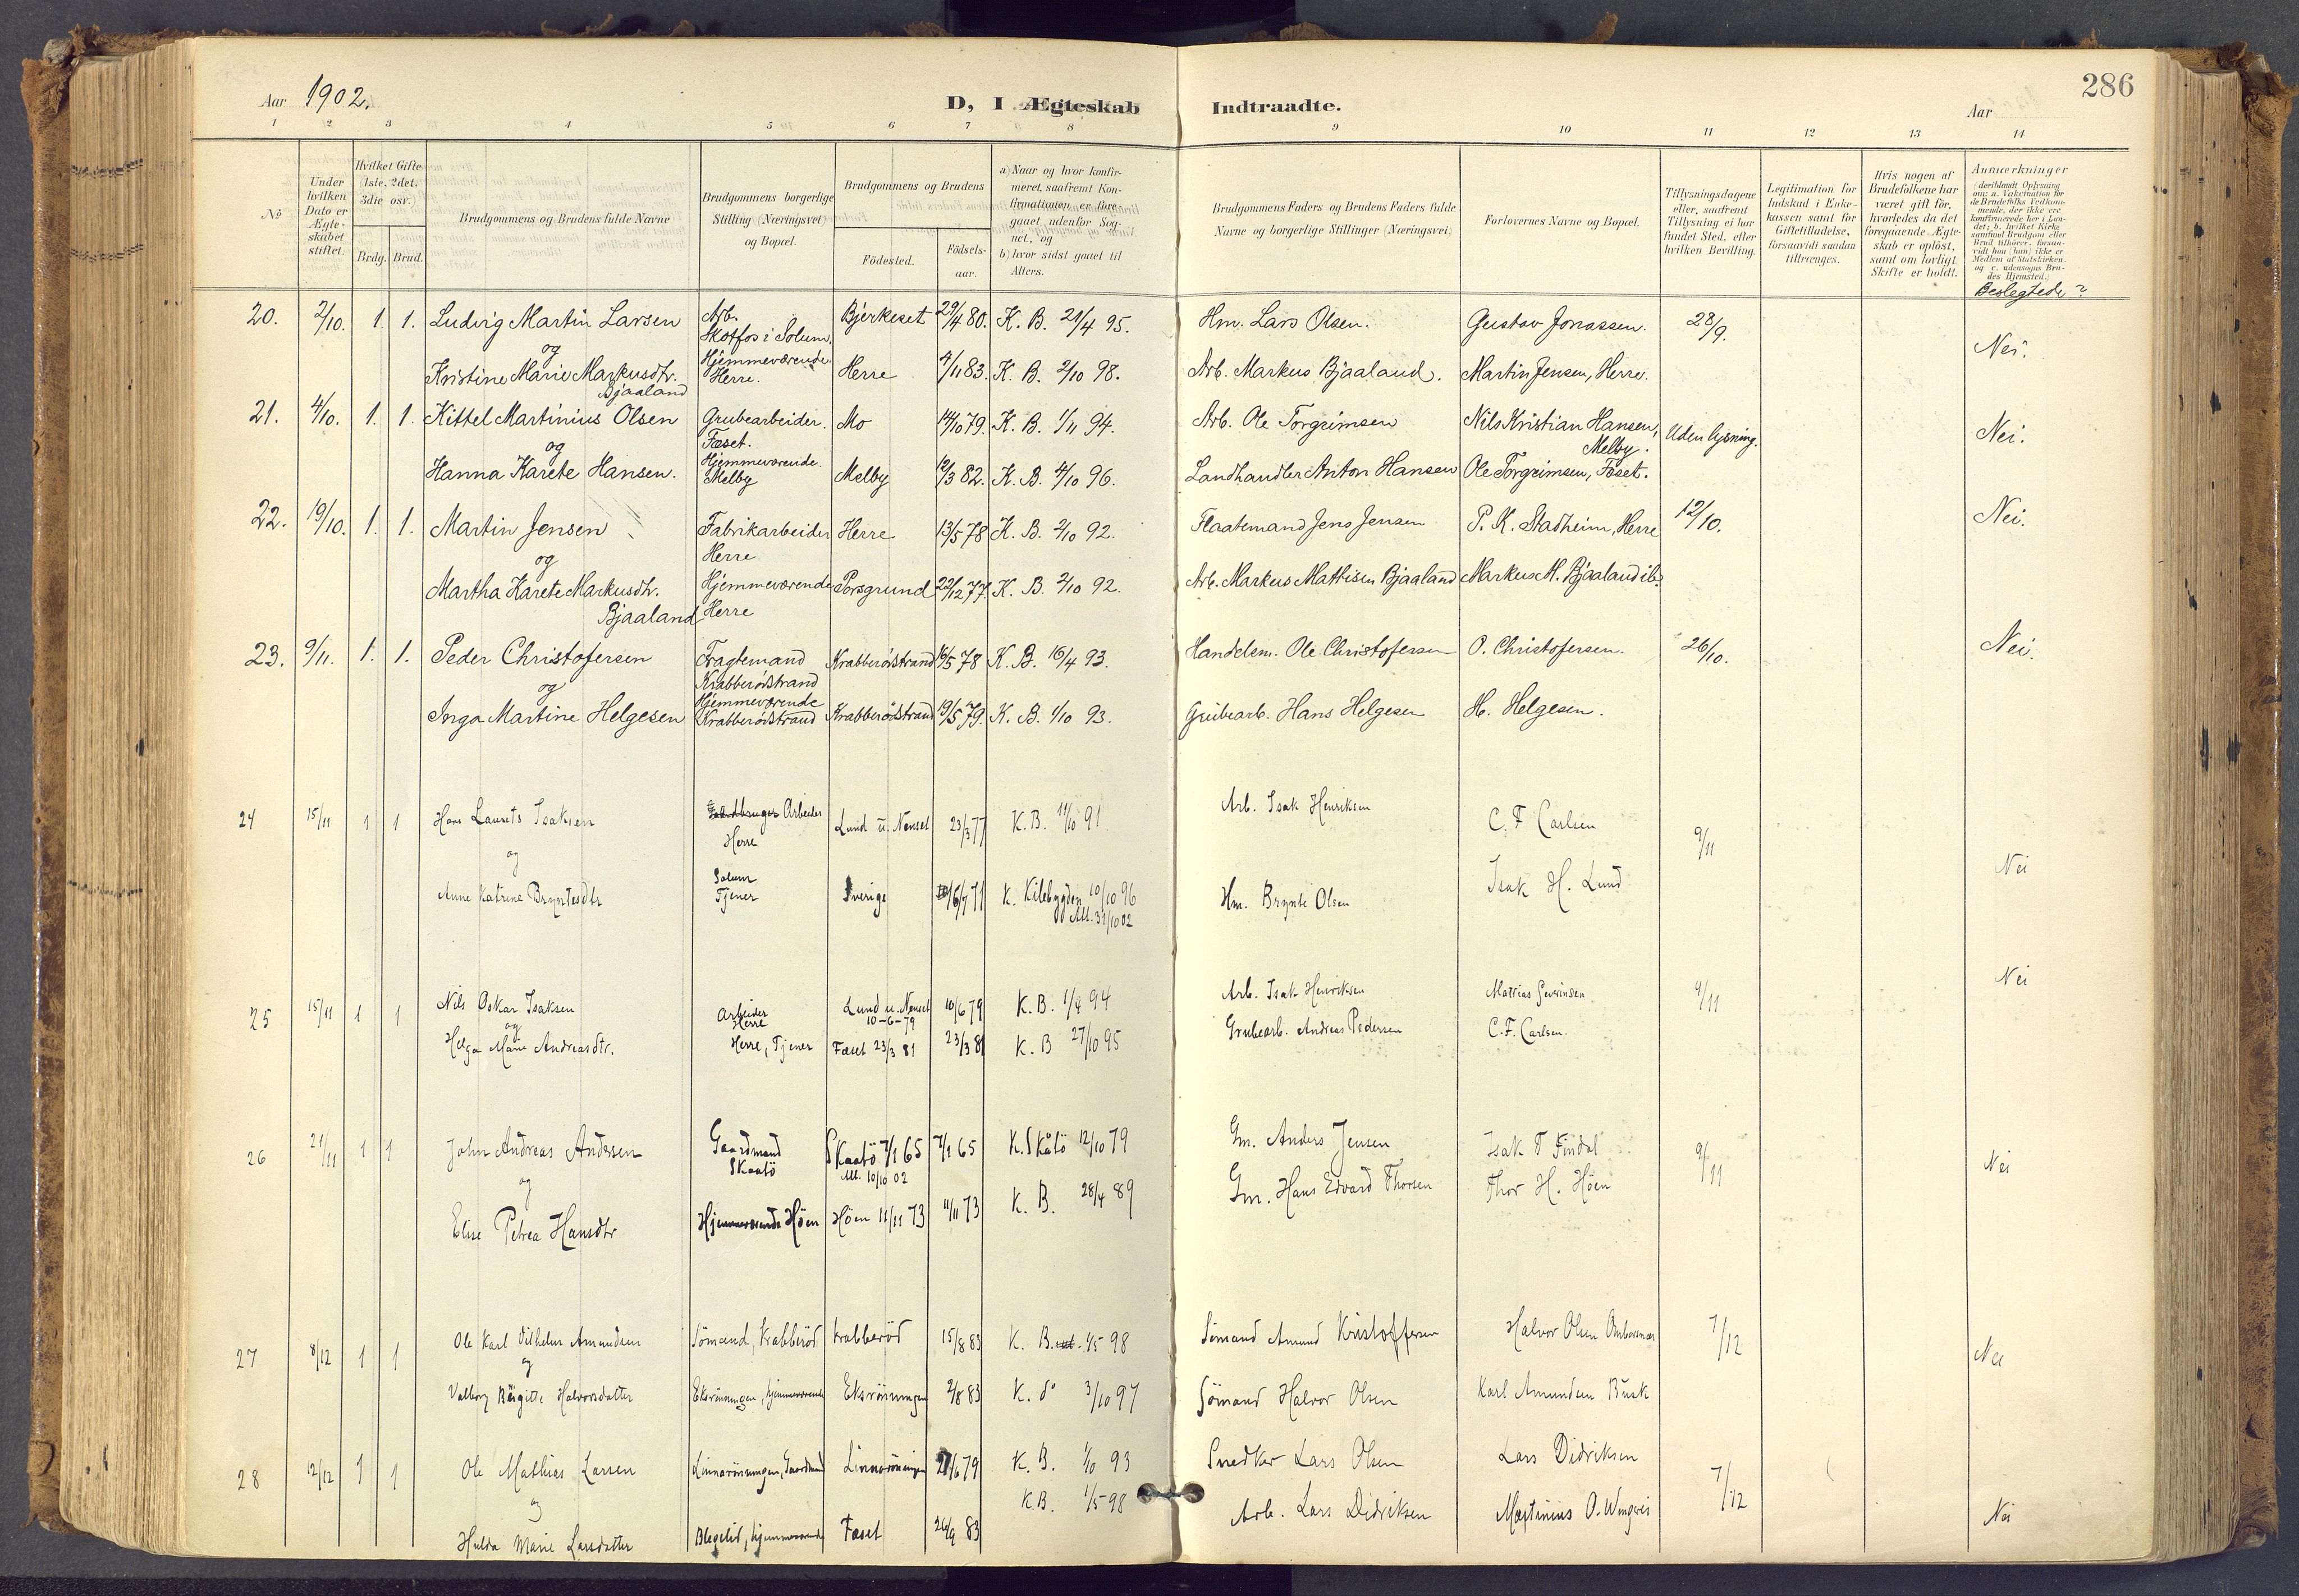 286
Aar 1902.
D, I Ægteskab Indtraadte.
Aar
1 2 3 4 5 6 7 8 9 10 11 12 13 14
No
Under hvilken Dato er Ægteskabet stiftet.
Hvilket Gifte (1ste, 2det, 3die osv.)
Brdg. Brud.
Brudgommens og Brudens fulde Navne
Brudgommens borgerlige Stilling (Næringsvei) og Bopæl.
Brudgommens og Brudens
Födested.
Födsels-aar.
a) Naar og hvor konfirmeret, saafremt Konfirmationen er foregaaet udenfor Sognet, og
b) hvor sidst gaaet til Alters.
Brudgommens Faders og Brudens Faders fulde Navne og borgerlige Stillinger (Næringsvei)
Forlovernes Navne og Bopæl.
Tillysningsdagene eller, saafremt Tillysning ei har fundet Sted, efter hvilken Bevilling.
Legitimation for Indskud i Enkekassen samt for Giftetilladelse, forsaavidt saadan tiltrænges.
Hvis nogen af Brudefolkene har været gift för, hvorledes da det foregaaende Ægteskab er oplöst, samt om lovligt Skifte er holdt.
Anmerkninger
Beslegtede?
20. 2/10. 1. 1. Ludvig Martin Larsen Arb. Skotfos i Solum. Bjerkeset 29/4 80. K. B. 21/4 95. Hm. Lars Olsen. Gustav Jonassen. 28/9. Nei.
og
Kristine Marie Markusdtr. Bjaaland Hjemmeværende. Herre. Herre 4/11 83. K. B. 2/10 98. Arb. Markus Bjaaland. Martin Jensen, Herre.
21. 4/10. 1. 1. Kittel Martinius Olsen Grubearbeider. Fæset. Mo 14/10 79. K. B. 1/11 94. Arb. Ole Torgrimsen Nils Kristian Hansen, Melby. Uden lysning. Nei.
og
Hanna Karete Hansen. Hjemmeværende. Melby Melby 12/3 82. K. B. 4/10 96. Landhandler Anton Hansen Ole Torgrimsen, Fæset.
22. 19/10. 1. 1. Martin Jensen Fabrikarbeider Herre Herre 13/5 78 K. B. 2/10 92. Flaatemand Jens Jensen P. K. Stadheim, Herre 12/10. Nei.
og
Martha Karete Markusdtr. Bjaaland Hjemmeværende Herre Porsgrund 22/12 77. K. B. 2/10 92. Arb. Markus Mathisen Bjaaland Markus M. Bjaaland ib.
23. 9/11. 1. 1. Peder Christofersen Fragtemand Krabberödstrand Krabberödstrand 16/5 78 K. B. 16/4 93. Handelsm. Ole Christofersen O. Christofersen. 26/10. Nei.
og
Inga Martine Helgesen Hjemmeværende Krabberödstrand Krabberödstrand 19/5 79. K. B. 1/10 93. Grubearb. Hans Helgesen H. Helgesen.
24 15/11 1 1 Hans Laurits Isaksen Arbeider Herre Lund u. Nenset 23/3 77 K. B. 11/10 91 Arb. Isak Henriksen C. F Carlsen 9/11 Nei
og
Anne Katrine Bryntesdtr Solum Tjener Sverige 71 K. Kilebygden 10/10 96 Alt. 31/10 02 Hm. Brynte Olsen Isak H. Lund
25 15/11 1 1 Nils Oskar Isaksen Arbeider Herre Lund u. Nenset 10-6-79 10/6 79 K. B. 1/4 94 Arb. Isak Henriksen Mathias Severinsen 9/11 Nei
og
Helga Marie Andreasdtr. Herre, Tjener Fæset 23/3 81 23/3 81 K. B 27/10 95 Grubearb. Andreas Pedersen C. F. Carlsen.
26 21/11 1 1 John Andreas Andersen Gaardmand Skaatö Skaatö 7/1 65 Alt. 10/10 02 7/1 65 K. Skåtö 12/10 79 Gm. Anders Jensen Isak T Findal 9/11 Nei
og
Elise Petrea Hansdtr Hjemmeværende Höen Höen 11/11 73 11/11 73 K. B. 28/4 89 Gm. Hans Edvard Thorsen Thor H. Höen
27 8/12 1 1 Ole Karl Vilhelm Amundsen Sömand, Krabberöd Krabberöd 15/8 83 K. B. 1/5 98 Sömand Amund Kristoffersen Halvor Olsen 7/12 Nei
og
Valborg Birgitte Halvorsdatter Eksröiningen, hjemmeværende Eksröiningen 2/8 83 K. do 3/10 97 Sömand Halvor Olsen Karl Amundsen Busk
28 12/12 1 1 Ole Mathias Larsen Linnaröiningen, Gaardmand Linnaröiningen 6 79 K. B. 1/10 93 Snedker Lars Olsen Lars Didriksen 7/12 Nei
og
Hulda Marie Larsdatter Blegelid, hjemmeværende Fæset 24/9 83 K. B. 1/5 98 Arb. Lars Didriksen Martinius O.